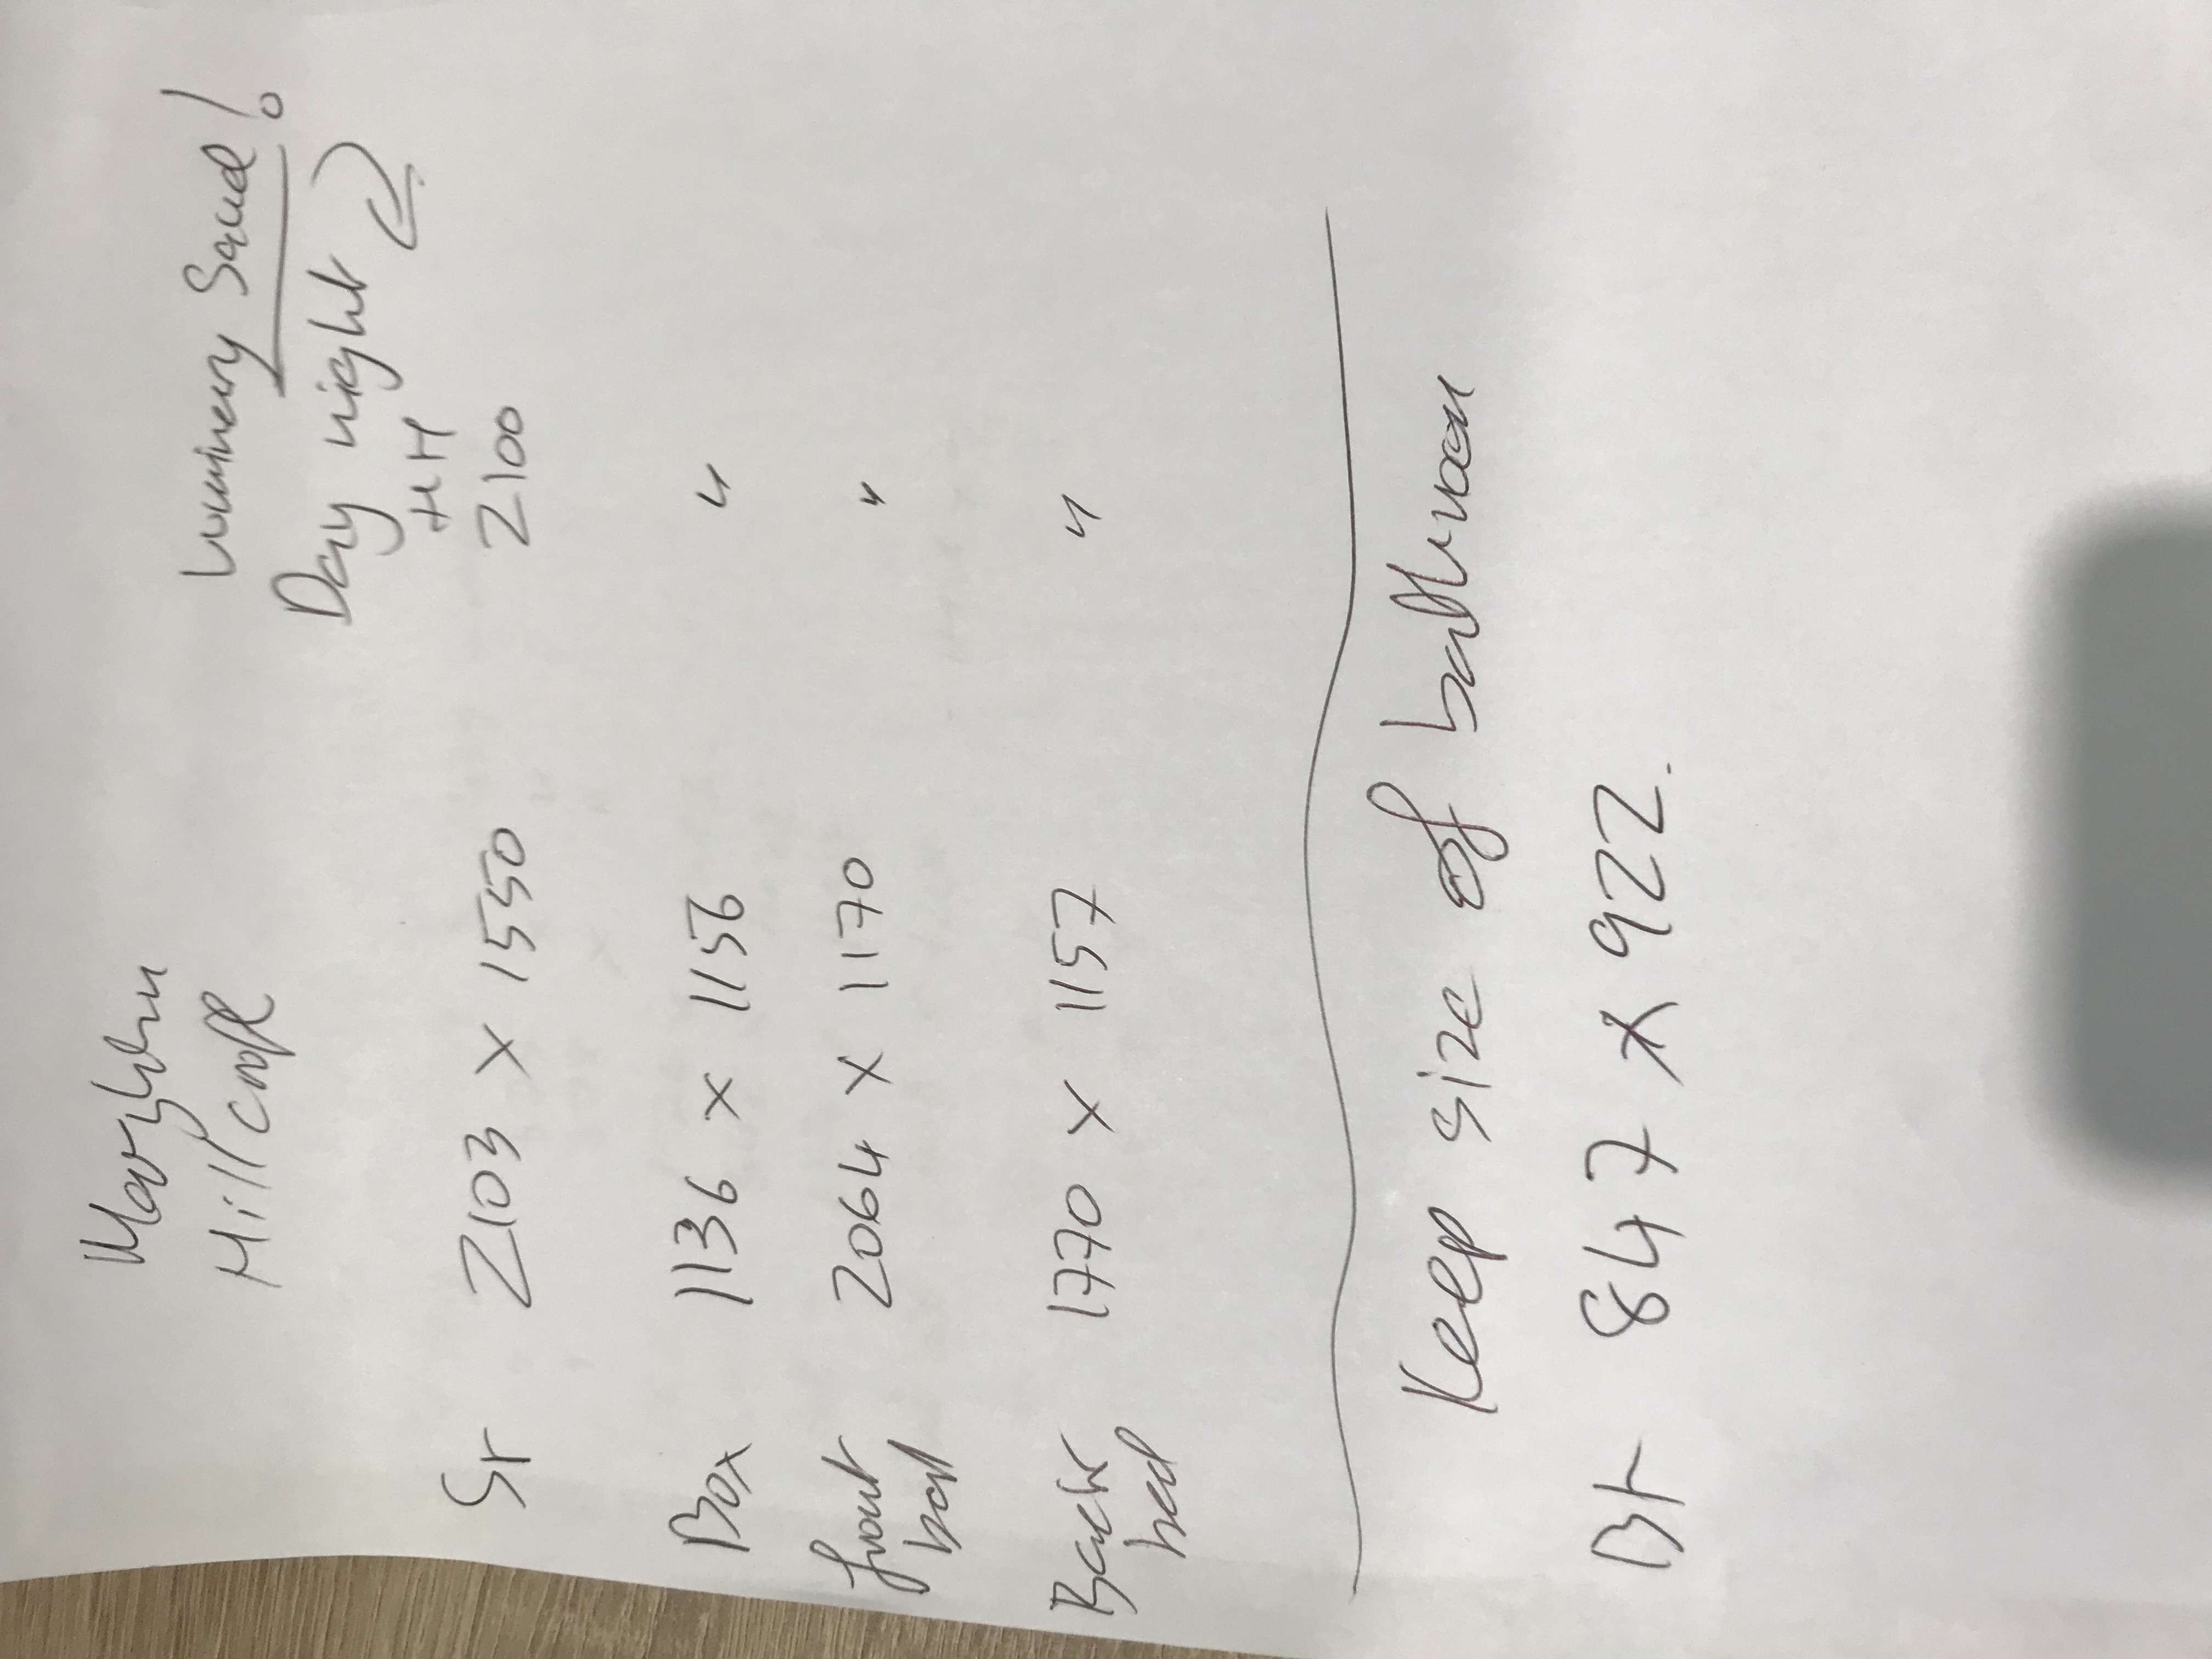 Hillcroft
Luminery Sand!
Day night
HH
Sr 2103 x 1550 2100
Box 1136 x 1156 "
front bed 2064 x 1170 "
Back bed 1770 x 1157 "
Keep size of bathroom
Br 847 x 922.